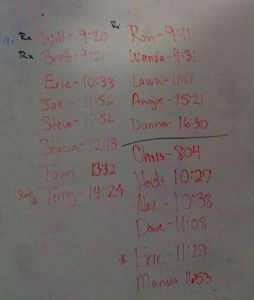 Rx Will - 9:20
Rx Brett - 9:21
Eric - 10:33
Joe - 11:56
Steve - 11:56
Stacia - 12:13
Tom - 13:32
Terry - 14:24
Rx Ron - 9:11
Wanda - 9:31
Laura - 11:11
Angie - 15:21
Donna - 16:30
Chris - 8:04
Heidi 10:27
Alex - 10:38
Dave - 11:08
Eric - 11:29
Marissa 16:53